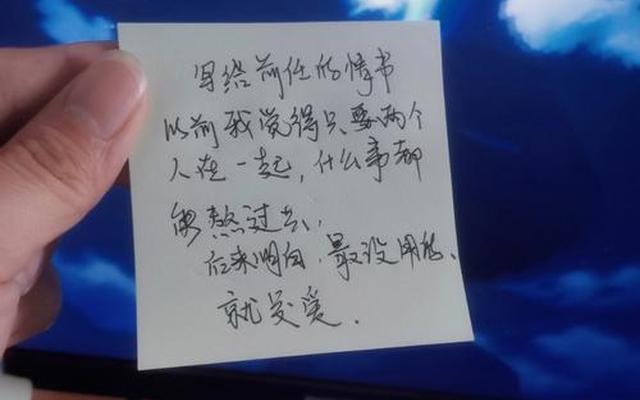 写给前任的情书
以前我觉得只要两个
人在一起，什么事都
能熬过去，
后来明白，最没用的、
就是爱．